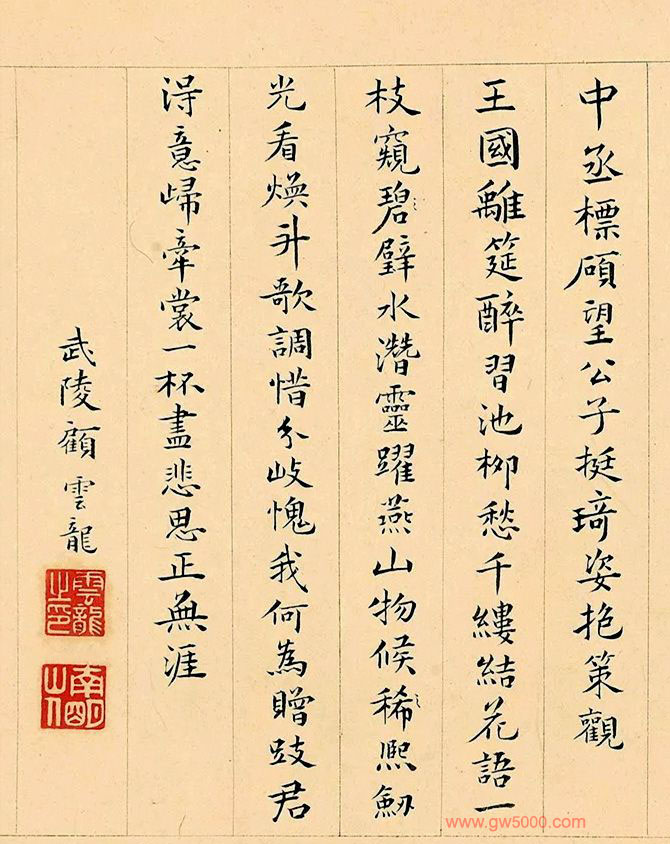 中丞標碩望公子挺琦姿抱策觀
王國離筵醉習池柳愁千縷結花語一
枝窺碧璧水潛靈躍燕山物候稀熈劔
光看煥斗歌調惜分岐愧我何為贈歧君
淂意歸牽裳一杯盡悲思正無涯
武陵顧雲龍
雲龍之印
www.gw5000.com